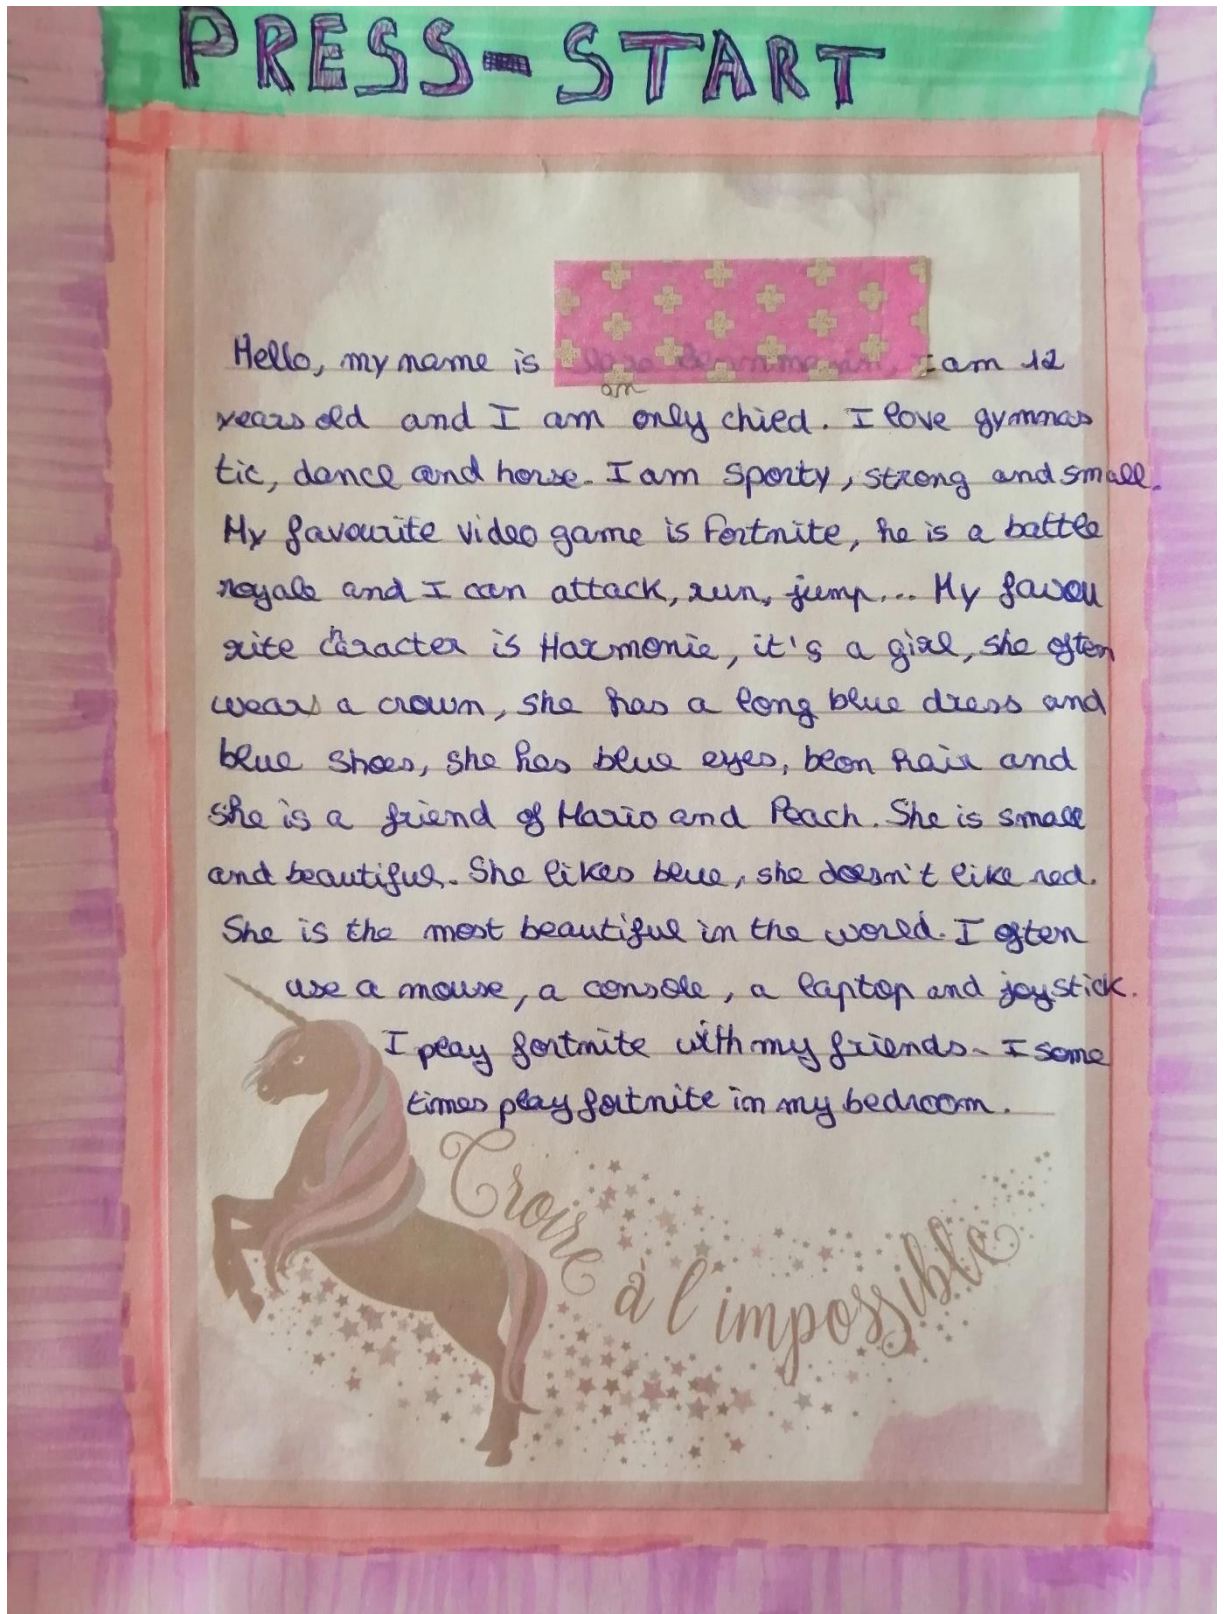 PRESS-START
Hello, my name is I am 12
an
years old and I am only chied. I love gymnas
tic, dance and horse. I am sporty, strong and small.
My favourite video game is Fortnite, he is a battle
royale and I can attack, run, jump... My favou
rite character is Harmonie, it's a girl, she often
wears a crown, she has a long blue dress and
blue shoes, she has blue eyes, blon hair and
she is a friend of Mario and Peach. She is small
and beautiful. She likes blue, she doesn't like red.
She is the most beautiful in the world. I often
use a mouse, a console, a laptop and joystick.
I play fortnite with my friends. I some
times play fortnite in my bedroom.
Croire à l'impossible